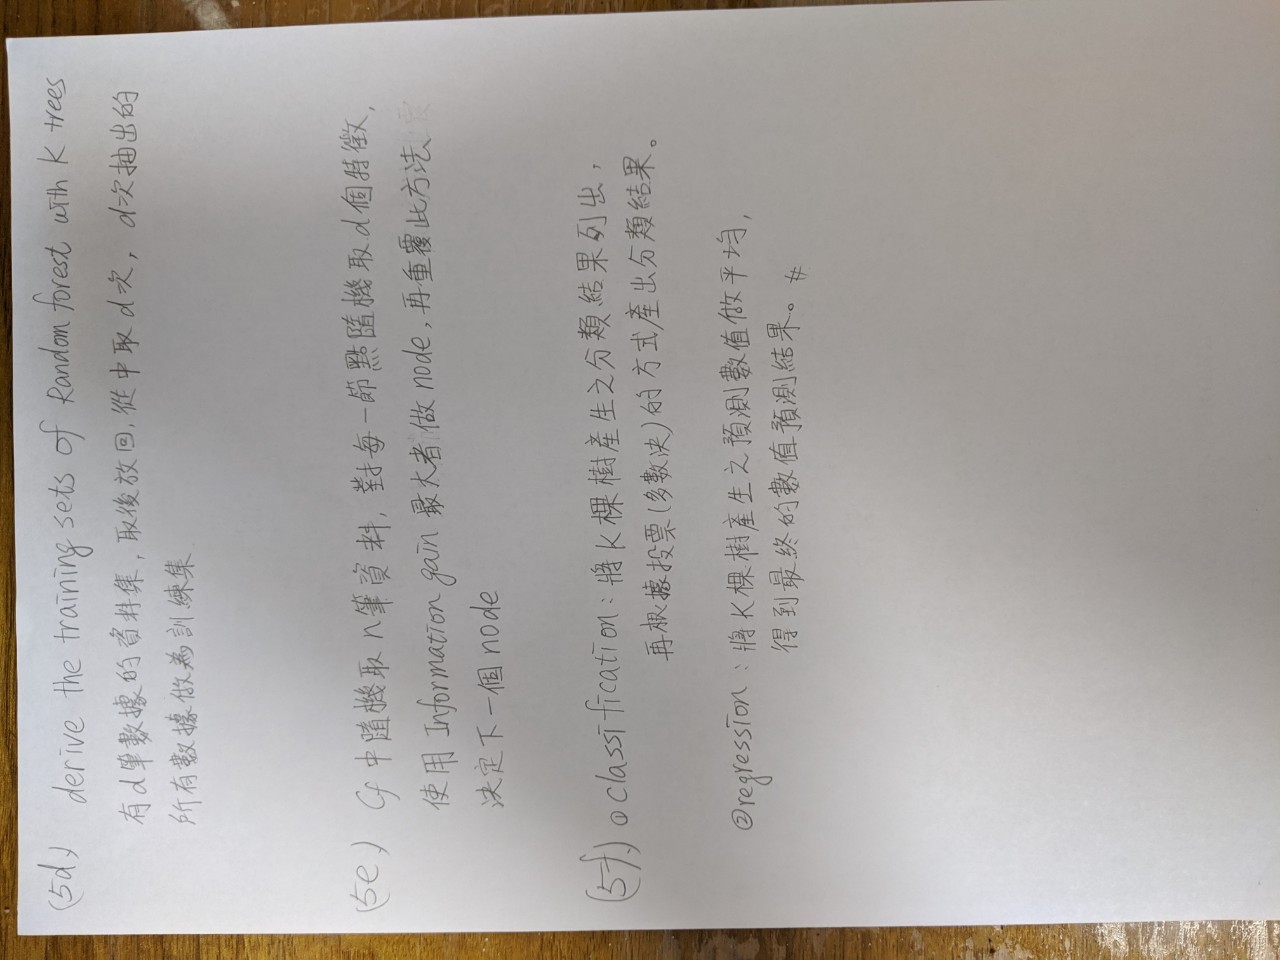 (5d) derive the training sets of Random forest with K trees
有d筆數據的資料集,取後放回,從中取d次,d次抽出的
所有數據做為訓練集
(5e) 中隨機取n筆資料,對每一節點隨機取d個特徵,
使用Information gain最大者做node,再重覆此方法
決定下一個node
(5f) ①classification:將K棵樹產生之分類結果列出,
再根據投票(多數決)的方式產出分類結果。
②regression:將K棵樹產生之預測數值做平均,
得到最終的數值預測結果。#